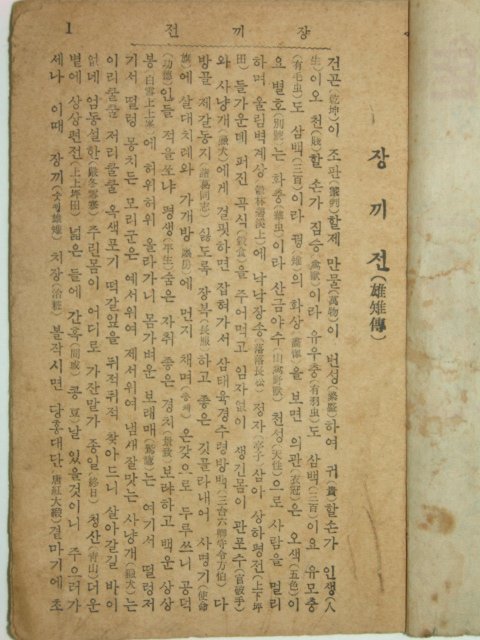 1
장끼전
장 끼 전(雄雉傳)
건곤(乾坤)이 조판(肇判)할제 만물(萬物)이 번성(繁盛)하여 귀(貴)할손가 인생(人
生)이오 천(賤)할 손가 짐승(萬獸)이라 유우충(有羽虫)도 삼백(三百)이요 유모충
(有毛虫)도 삼백(三百)이라 꿩(雉)의 화상(畵像)을 보면 의관(衣冠)은 오색(五色)이
요 별호(別號)는 화충(華虫)이라 산금야수(山禽野獸)천성(天性)으로 사람을 멀리
하며 울림벽계상(鬱林碧溪上)에 낙낙장송(落落長松)정자(亭子)삼아 상하평전(上下坪
田)들가운데 퍼진 곡식(穀食)을 주어먹고 임자없이 생긴몸이 관포수(官砲手)
와 사냥개(獵犬)에게 걸핏하면 잡혀가서 삼태육경수령방백(三台六卿守令方伯)다
방골 제갈동지(諸葛同志)싫도록 장복(長服)하고 좋은 깃골라내어 사명기(使命
旗)에 살대치레와 가개방 에 먼지 채며 온갖으로 두루쓰니 공덕
(功德)인들 적을쏘냐 평생(平生)숨은 자취 좋은 경치(景致)보랴하고 백운 상상
봉(白雲上上峯)에 허위허위 올라가니 몸가벼운 보래매 는 여기서 떨렁저
기서 떨렁 몽치든 모리군은 예서위여 제서위여 냄새잘맛는 사냥개(獵犬)는
이리쿨쿨 저리쿨쿨 옥색포기 떡갈잎을 뒤적뒤적 찾아드니 살아갈길 바이
없네 엄동설한(嚴冬雪寒)주린몸이 어디로 가잔말가 종일(終日)청산(靑山)더운
볕에 상상편전(上上坪田)넓은 들에 간혹(間或)콩 날 있을것이니 주으러가
세나 이때 장끼 치장(治粧)볼작시면 당홍대단(唐紅大緞)겉마기에 초